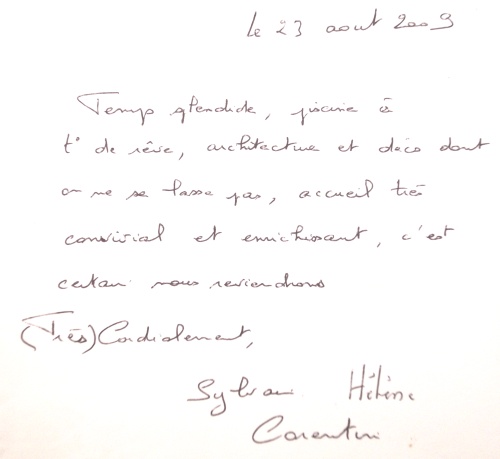 le 23 aout 2009
Temps splendide, piscine à
t° de rêve, architecture et déco dont
on ne se lasse pas, accueil très
convivial et enrichissant, c'est
certain nous reviendrons
(Très) Cordialement,
Sylvain Hélène
Corentin